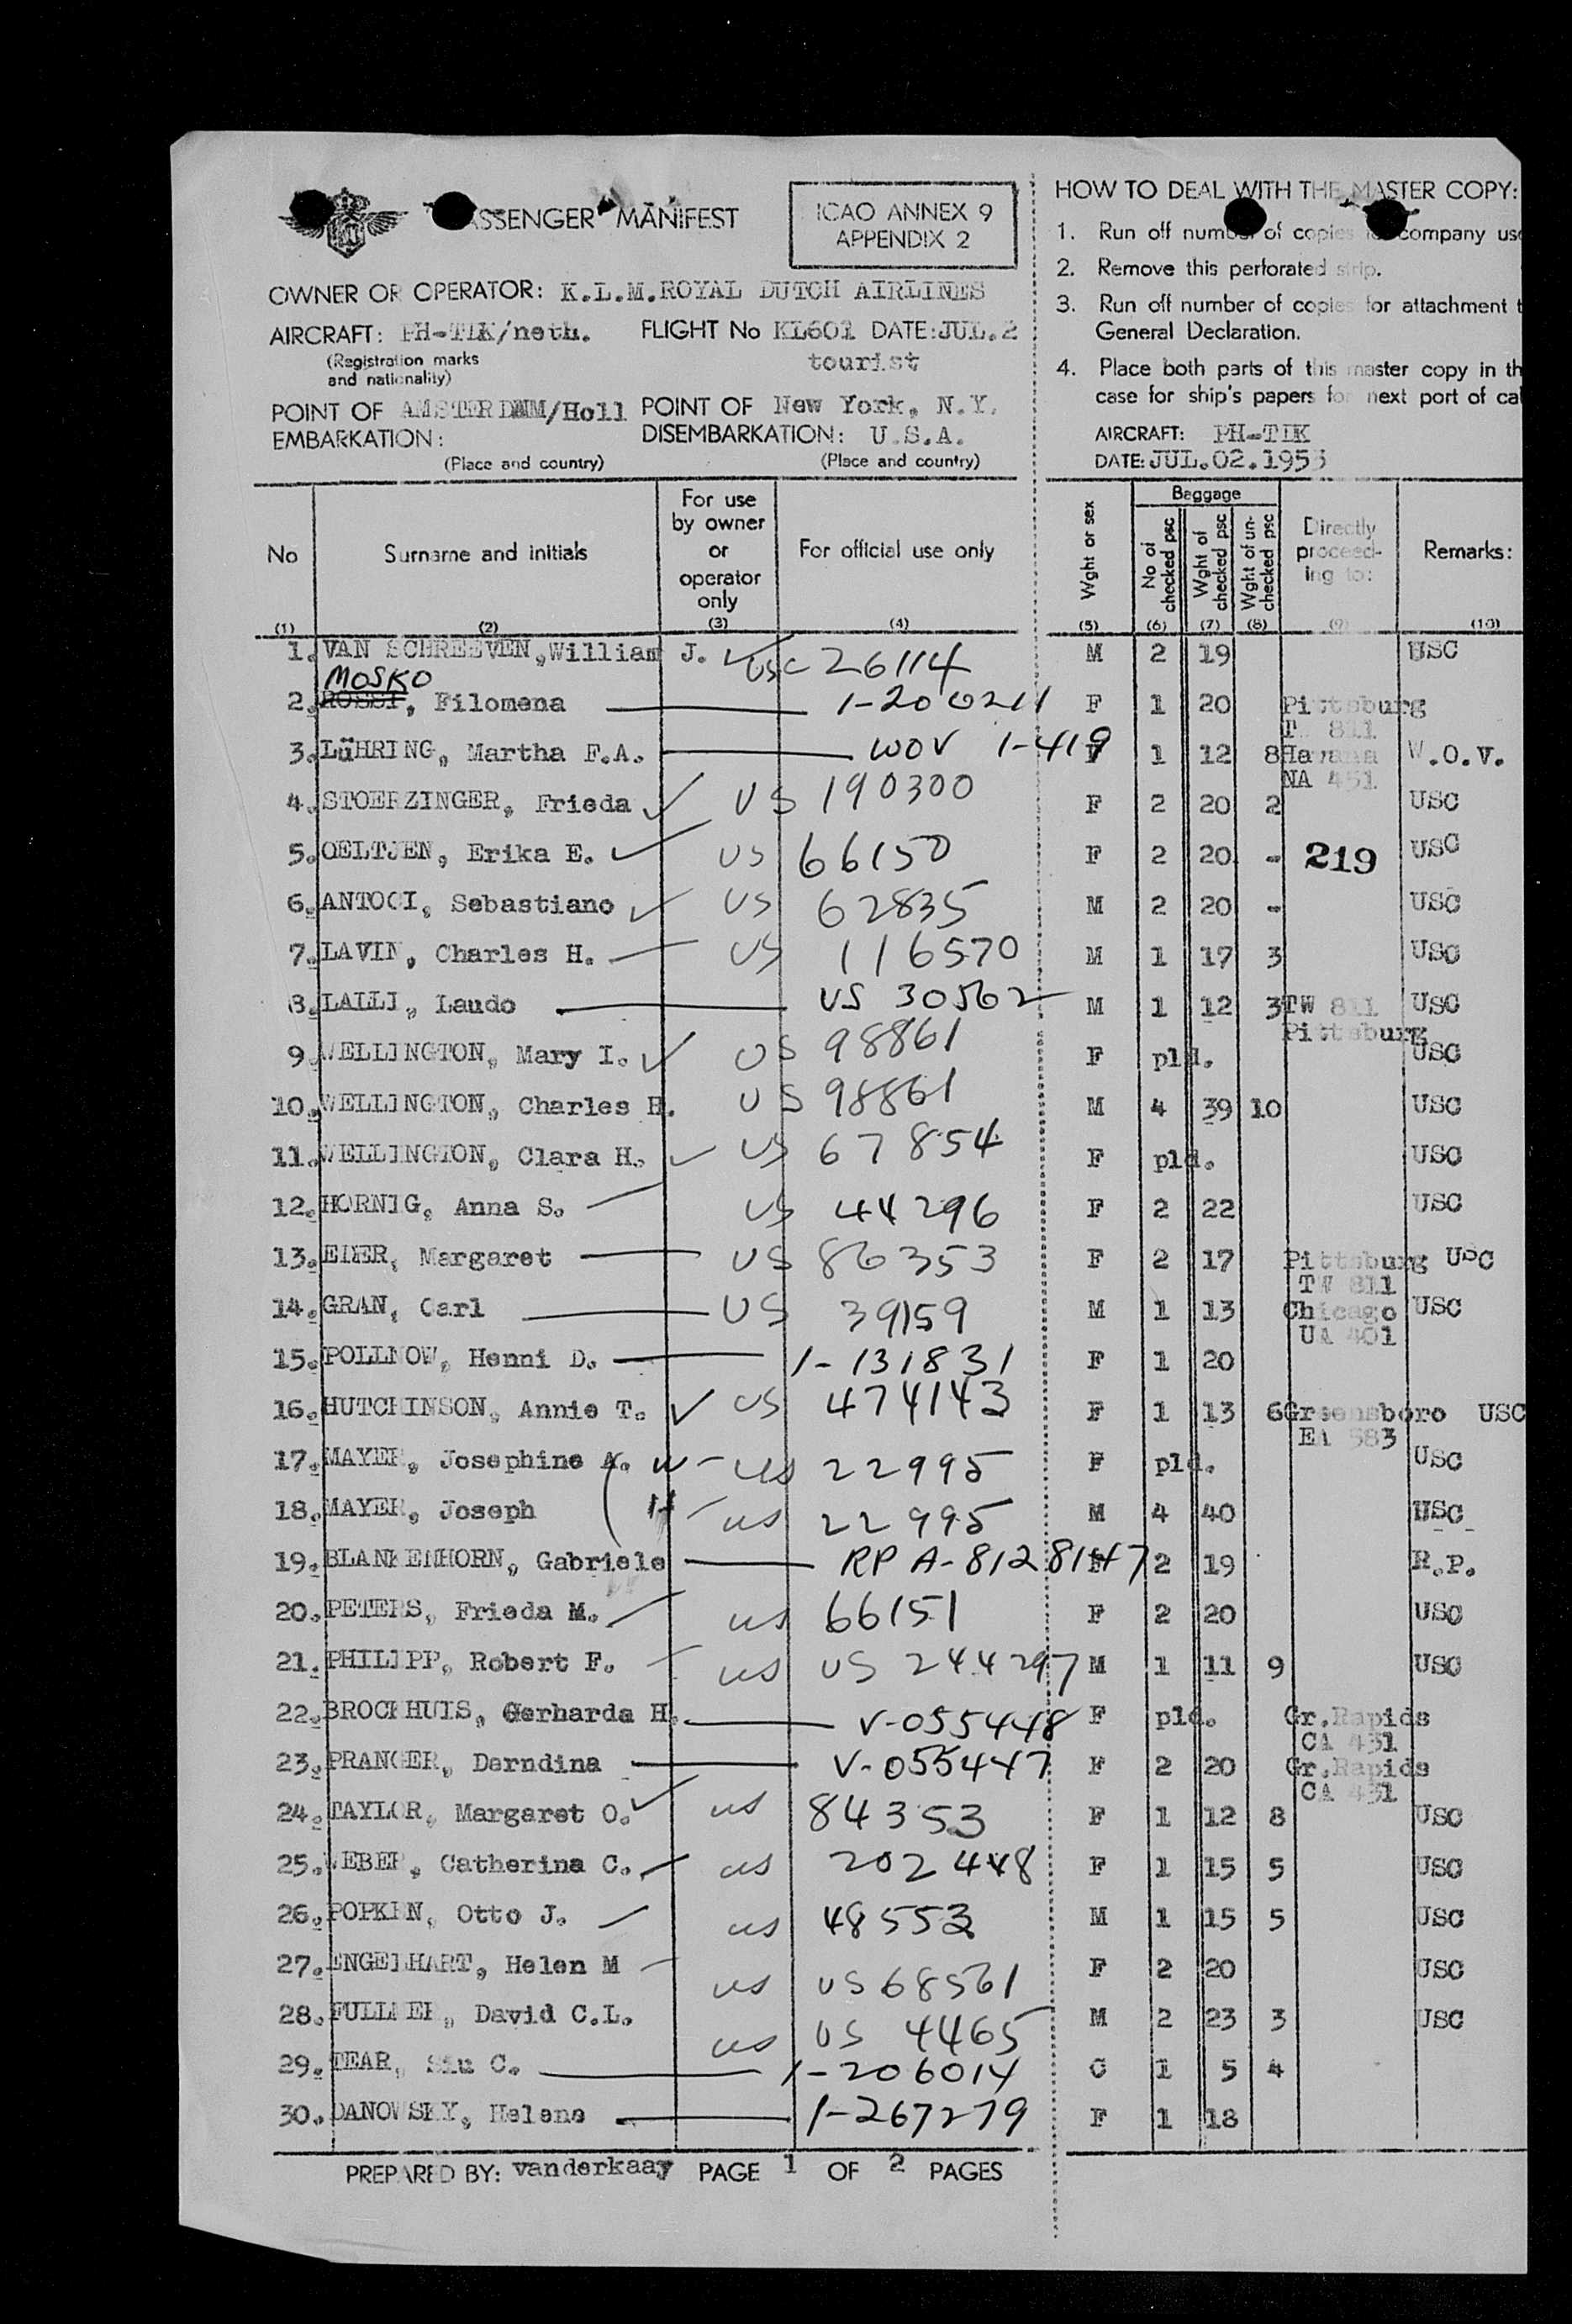 PASSENGER MANIFEST
ICAO ANNEX 9
APPENDIX 2
OWNER OR OPERATOR: K.L.M.ROYAL DUTCH AIRLINES
AIRCRAFT: PH-TIK/neth. FLIGHT No KL601 DATE:JUL.2
(Registration marks and nationality) tourist
POINT OF EMBARKATION: AMSTERDAM/Holl POINT OF DISEMBARKATION: New York, N.Y. U.S.A.
(Place and country) (Place and country)
HOW TO DEAL WITH THE MASTER COPY:
1. Run off number of copies for company use
2. Remove this perforated strip.
3. Run off number of copies for attachment t
General Declaration.
4. Place both parts of this master copy in th
case for ship's papers for next port of cal
AIRCRAFT: PH-TIK
DATE: JUL.02.1953
No Surname and initials For use by owner or operator only For official use only Wght or sex Baggage No of checked psc Wght of checked psc Wght of un-checked psc Directly proceed-ing to: Remarks:
(1) (2) (3) (4) (5) (6) (7) (8) (9) (10)
1. VAN SCHREEVEN, William J. USC 26114 M 2 19 USC
MOSKO
2. ROSSI, Filomena 1-200211 F 1 20 Pittsburg
T 811
3. LüHRING, Martha F.A. WOV 1-419 F 1 12 8 Havana W.O.V.
NA 451
4. STOERZINGER, Frieda US 190300 F 2 20 2 USC
5. OELTJEN, Erika E. US 66150 F 2 20 - 219 USC
6. ANTOCI, Sebastiano US 62835 M 2 20 - USC
7. LAVIN, Charles H. US 116570 M 1 17 3 USC
8. LALLI, Laudo US 30562 M 1 12 3 TW 811 USC
Pittsburg
9. WELLINGTON, Mary I. US 98861 F pld. USC
10. WELLINGTON, Charles H. US 98861 M 4 39 10 USC
11. WELLINGTON, Clara H. US 67854 F pld. USC
12. HORNIG, Anna S. US 44296 F 2 22 USC
13. Margaret US 86353 F 2 17 Pittsburg USC
TW 811
14. GRAN, Carl US 39159 M 1 13 Chicago USC
UA 401
15. POLLNOW, Henni D. 1-131831 F 1 20
16. HUTCHINSON, Annie T. US 474143 F 1 13 6 Greensboro USC
EA 583
17. MAYER, Josephine A. W- US 22995 F pld. USC
18. MAYER, Joseph H US 22995 M 4 40 USC
19. BLANKENHORN, Gabriele RP A-8128147 F 2 19 R.P.
20. PETERS, Frieda M. us 66151 F 2 20 USC
21. PHILIPP, Robert F. us US 244297 M 1 11 9 USC
22. BROCKHUIS, Gerharda H. V-055448 F pld. Gr.Rapids
CA 431
23. PRANGER, Derndina V-055447 F 2 20 Gr.Rapids
CA 431
24. TAYLOR, Margaret O. us 84353 F 1 12 8 USC
25. WEBER, Catherina C. us 202448 F 1 15 5 USC
26. POPKEN, Otto J. us 48553 M 1 15 5 USC
27. ENGELHART, Helen M us US 68561 F 2 20 USC
28. David C.L. us US 4465 M 2 23 3 USC
29. TEAR, Siu C. 1-206014 C 1 5 4
30. DANOWSKY, Helene 1-267279 F 1 18
PREPARED BY: vanderkaay PAGE 1 OF 2 PAGES